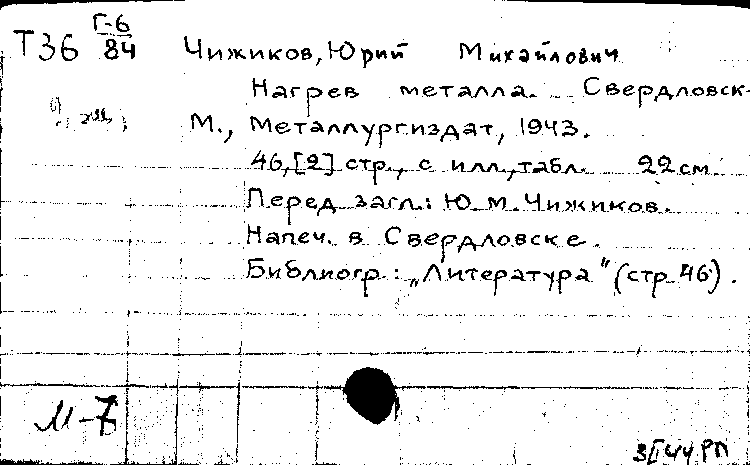 Т36 Г-6/84 Чижиков, Юрий Михайлович
Нагрев металла. Свердловск-
М., Металлургиздат, 1943.
46,[2] стр., с илл., табл. 22 см.
Перед загл.: Ю. М. Чижиков.
Напеч. в Свердловске.
Библиогр.: „Литература" (стр. 46).
М-7